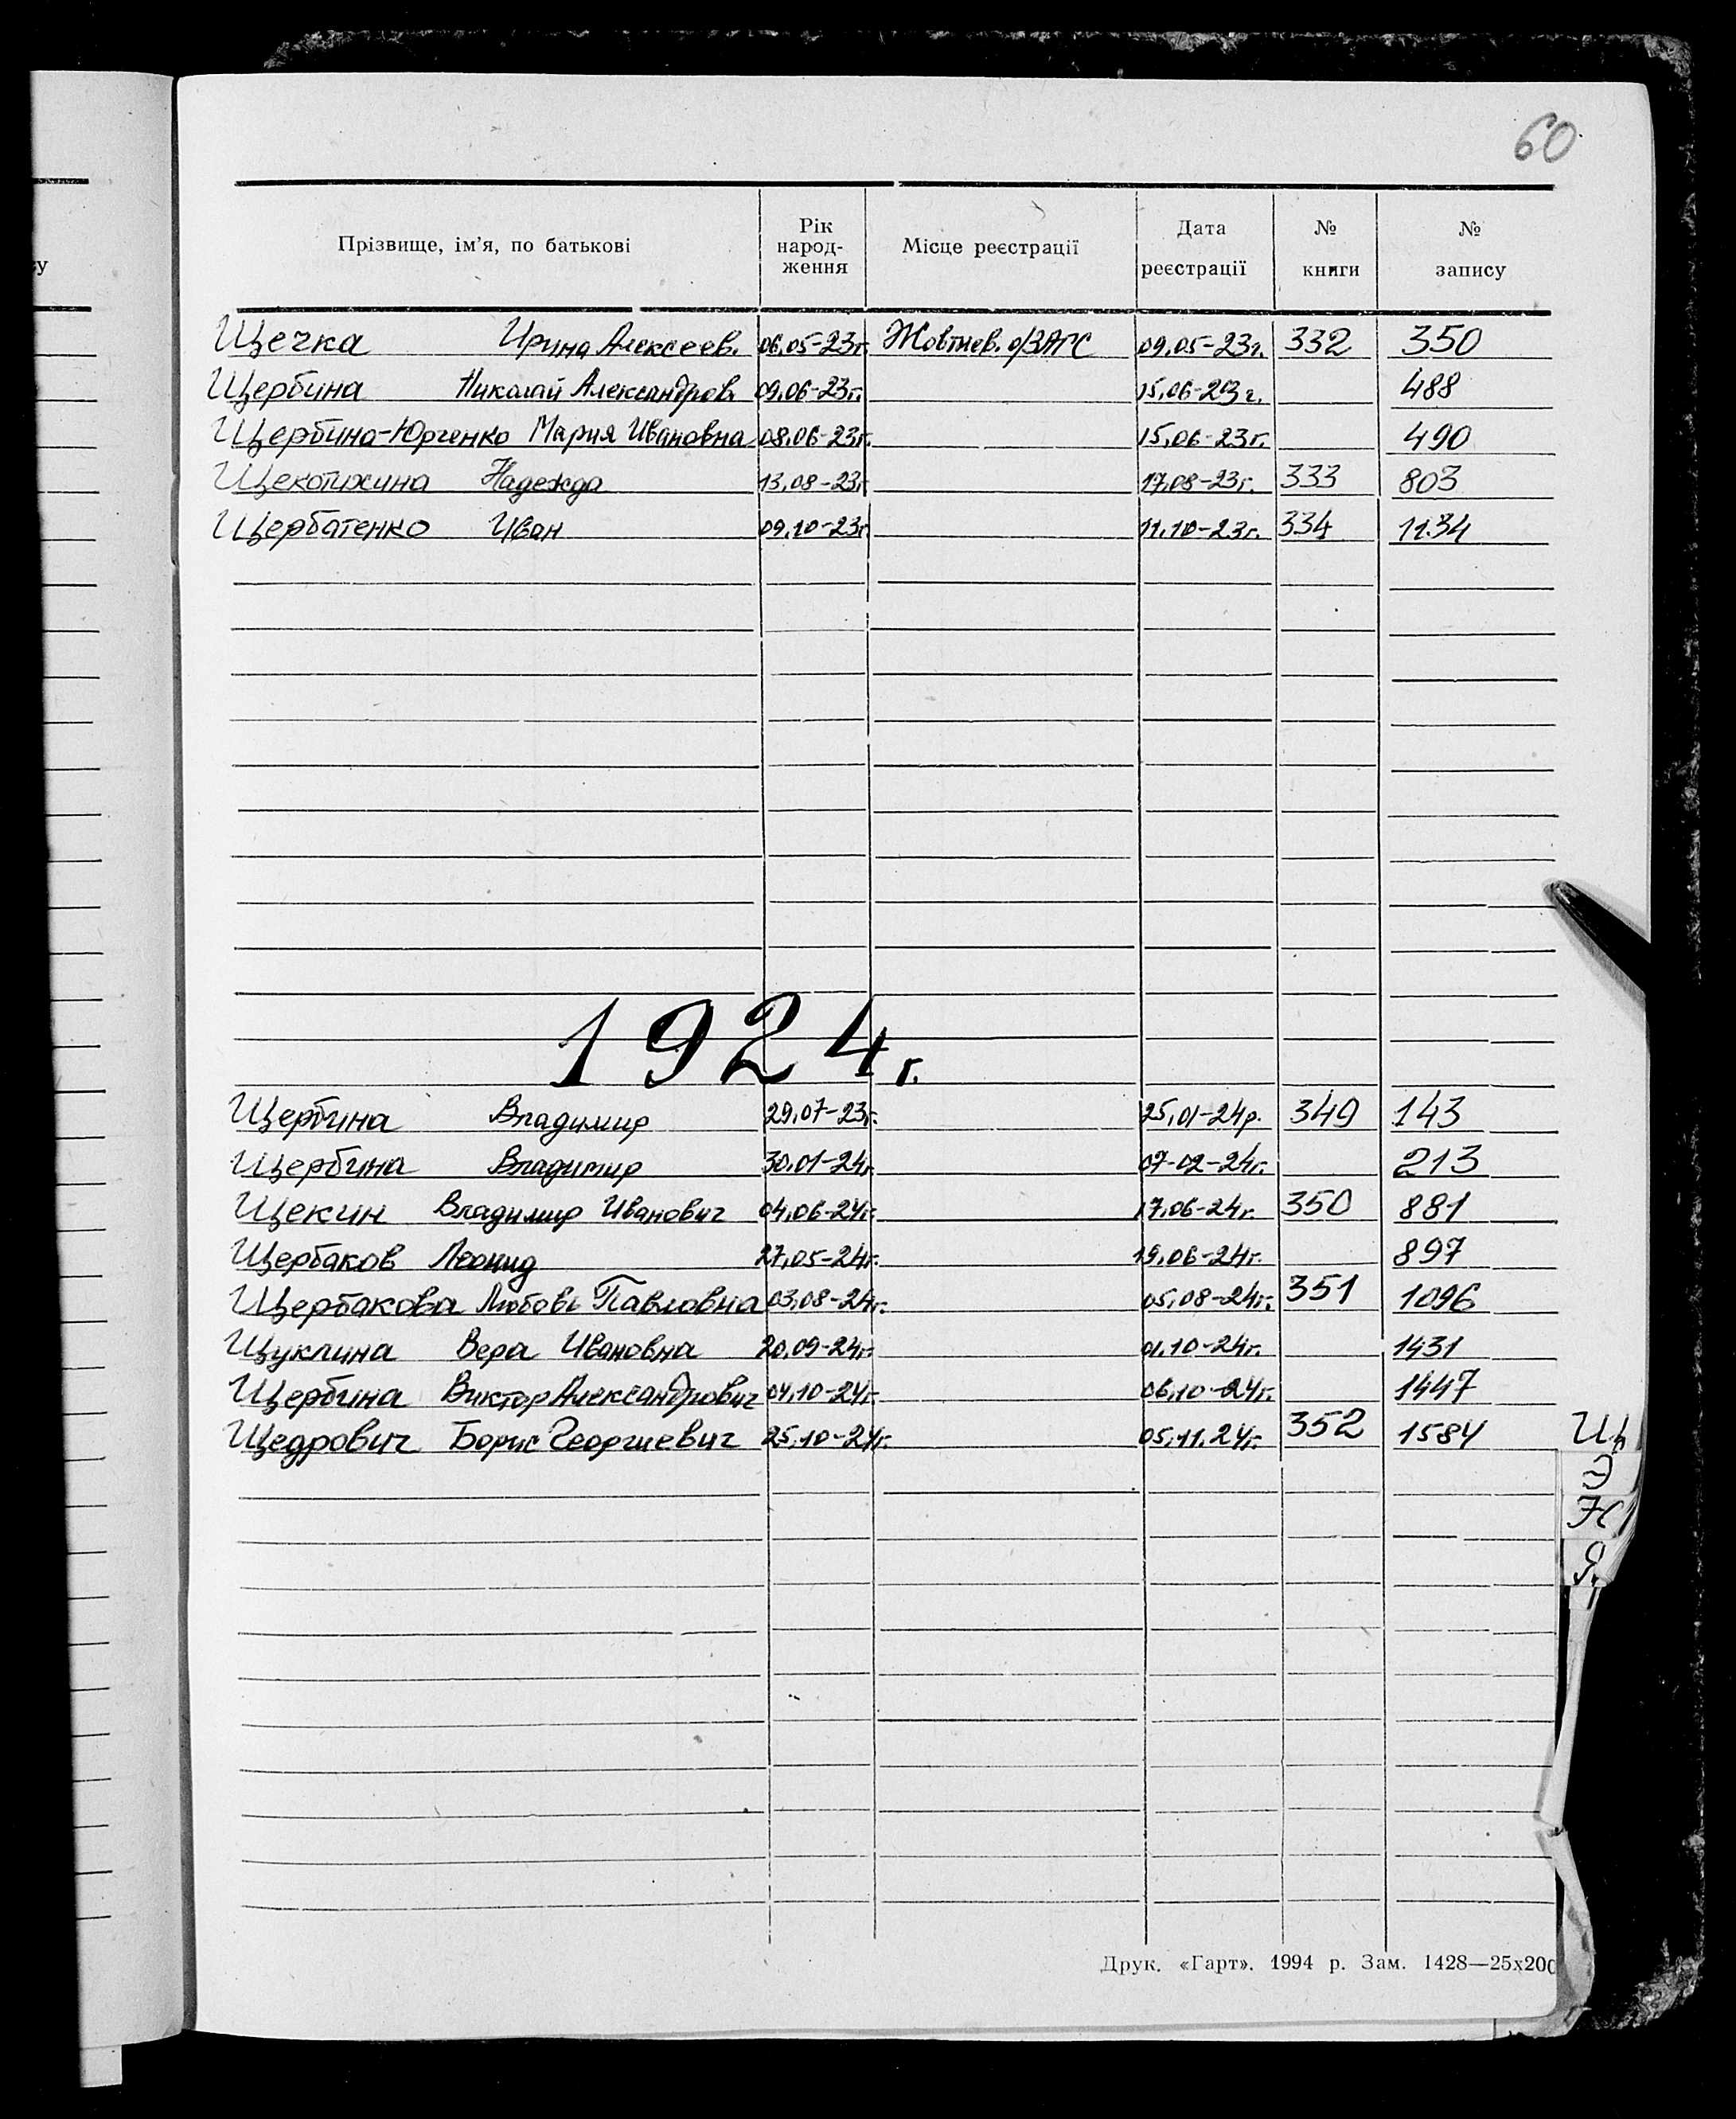 60
Прізвище, ім'я, по батькові Рік народ- ження Місце реєстрації Дата реєстрації № книги № запису
Щечка Ирина Алексеев. 06.05-23г. Жовтнев. о/ЗАГС 09.05-23г. 332 350
Щербина Николай Александров 09.06-23г. 15.06-23г. 488
Щербина-Юрченко Мария Ивановна 08.06-23г. 15.06-23г. 490
Щекотихина Надежда 13.08-23г 17.08-23г. 333 803
Щербатенко Иван 09.10-23г 11.10-23г. 334 1134
1924г.
Щербина Владимир 29.07-23г. 25.01-24р. 349 143
Щербина Владимир 30.01-24г 07-02-24г. 213
Щекин Владимир Иванович 04.06-24г. 17.06-24г. 350 881
Щербаков Леонид 27.05-24г. 19.06-24г. 897
Щербакова Любовь Павловна 03.08-24г. 05.08-24г. 351 1096
Щуклина Вера Ивановна 20.09-24г. 01.10-24г. 1431
Щербина Виктор Александрович 04.10-24г. 06.10-24г. 1447
Щедрович Борис Георгиевич 25.10-24г. 05.11.24г. 352 1584
Щ
Э
Ю
Я
Друк. «Гарт». 1994 р. Зам. 1428—25х200